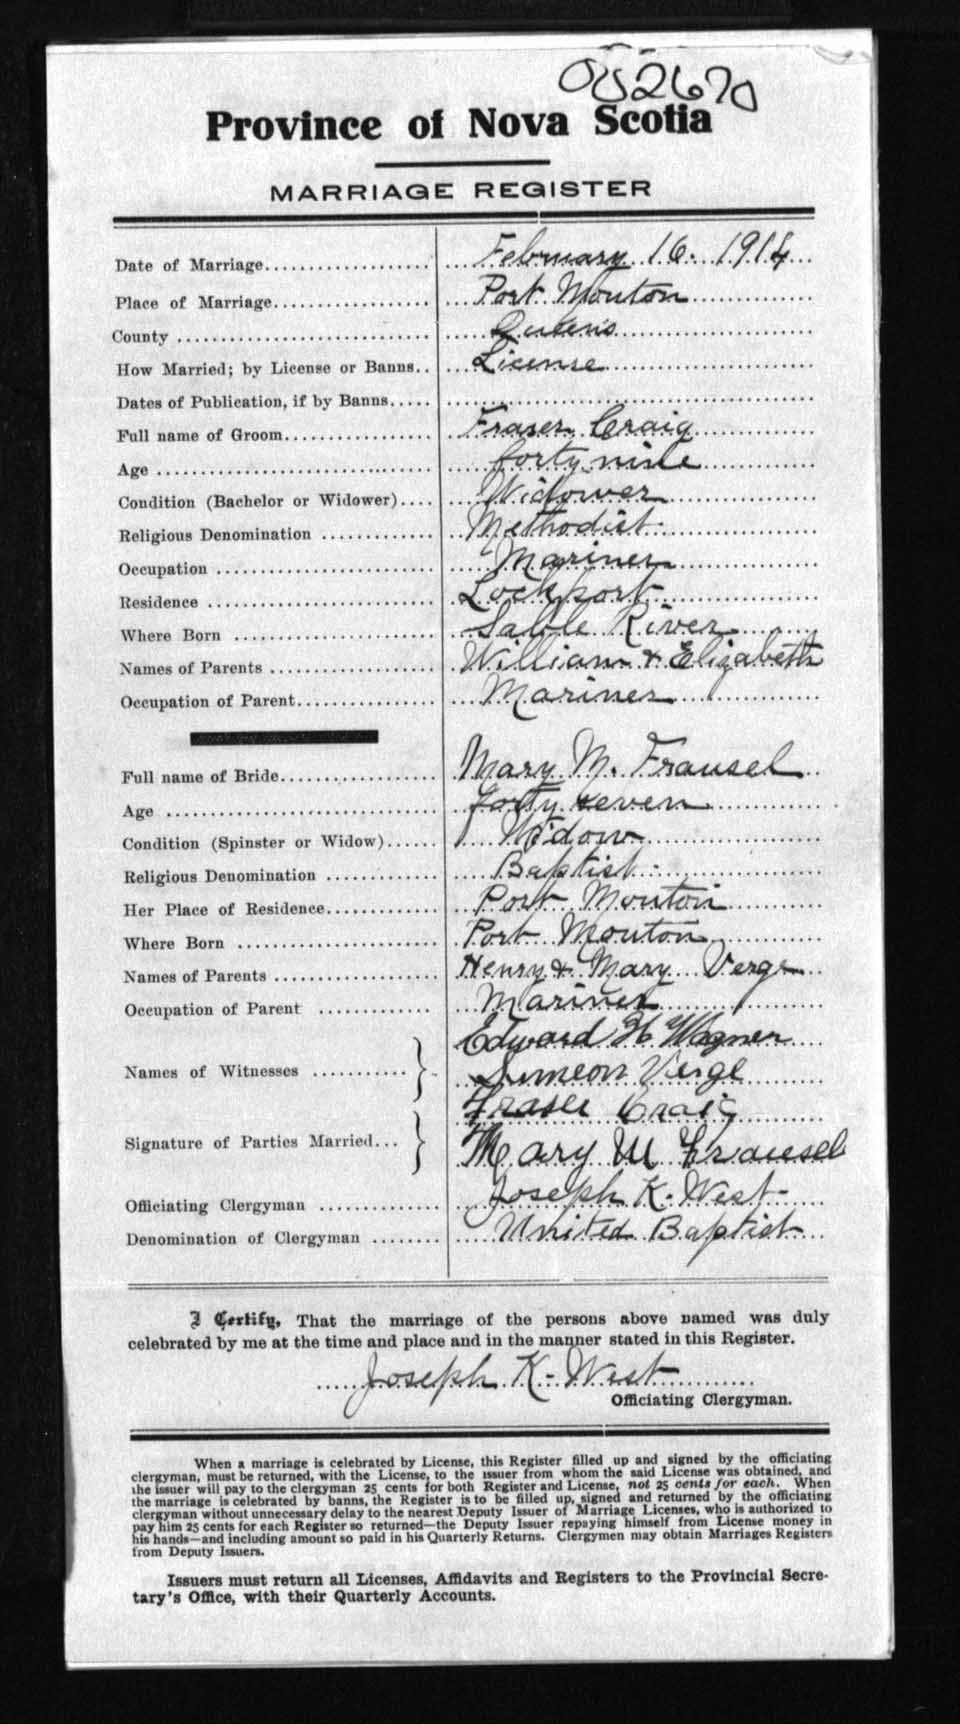 002670
Province of Nova Scotia
MARRIAGE REGISTER
Date of Marriage.................... February 16. 1914
Place of Marriage................... Port Mouton
County .............................. Queens
How Married; by License or Banns.. License
Dates of Publication, if by Banns.....
Full name of Groom................. Fraser Craig
Age ................................ forty nine
Condition (Bachelor or Widower).... Widower
Religious Denomination ............. Methodist
Occupation ......................... Mariner
Residence .......................... Lockport
Where Born ........................ Sable River
Names of Parents ................... William & Elizabeth
Occupation of Parent................ Mariner
Full name of Bride................... Mary M. Frausel
Age ................................ forty seven
Condition (Spinster or Widow)...... Widow
Religious Denomination ............ Baptist
Her Place of Residence............. Port Mouton
Where Born ........................ Port Mouton
Names of Parents ................... Henry & Mary Verge
Occupation of Parent ............. Mariner
Edward H Wagner
Names of Witnesses ........... } Simeon Verge
Fraser Craig
Signature of Parties Married... } Mary M Frausel
Officiating Clergyman .............. Joseph K. West
Denomination of Clergyman ........ United Baptist
I Certify, That the marriage of the persons above named was duly
celebrated by me at the time and place and in the manner stated in this Register.
Joseph K. West
Officiating Clergyman.
When a marriage is celebrated by License, this Register filled up and signed by the officiating
clergyman, must be returned, with the License, to the issuer from whom the said License was obtained, and
the issuer will pay to the clergyman 25 cents for both Register and License, not 25 cents for each. When
the marriage is celebrated by banns, the Register is to be filled up, signed and returned by the officiating
clergyman without unnecessary delay to the nearest Deputy Issuer of Marriage Licenses, who is authorized to
pay him 25 cents for each Register so returned—the Deputy Issuer repaying himself from License money in
his hands—and including amount so paid in his Quarterly Returns. Clergymen may obtain Marriages Registers
from Deputy Issuers.
Issuers must return all Licenses, Affidavits and Registers to the Provincial Secre-
tary's Office, with their Quarterly Accounts.